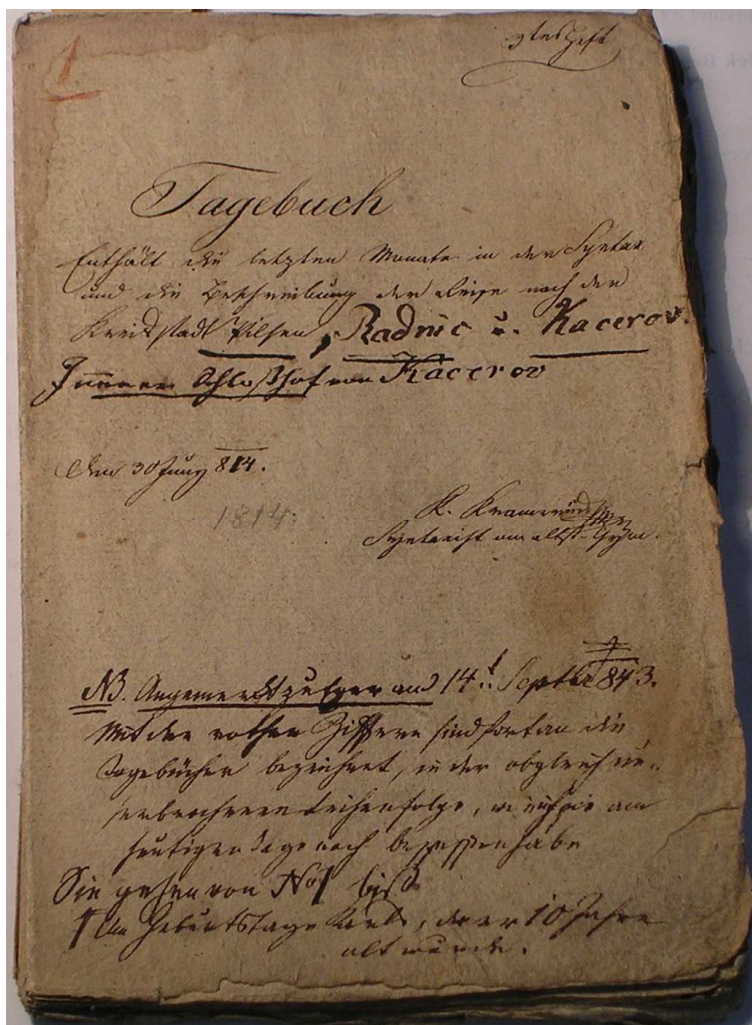 1.
3tes Heft
Tagebuch
Enthält die letzten Monate in der Syntax
und die Beschreibung der Reise nach der
Kreisstadt Pilsen, Radnic u. Kacerov.
Innerer Schloßhof von Kacerov
Den 30 Juny 814.
1814.
K.
Syntaxist am altst. Gym.
NB. Angemerkt zu Eger am 14t Septbr 843.
Mit den rothen Ziffern sind fortan die
Tagebücher bezeichnet, in der obgleich un-
terbrochenen Reihenfolge, wie ich sie am
heutigen Tage noch besessen habe
Sie gehen von No 1 biß
Am Geburtstage Karls, da er 10 Jahre
alt wurde.